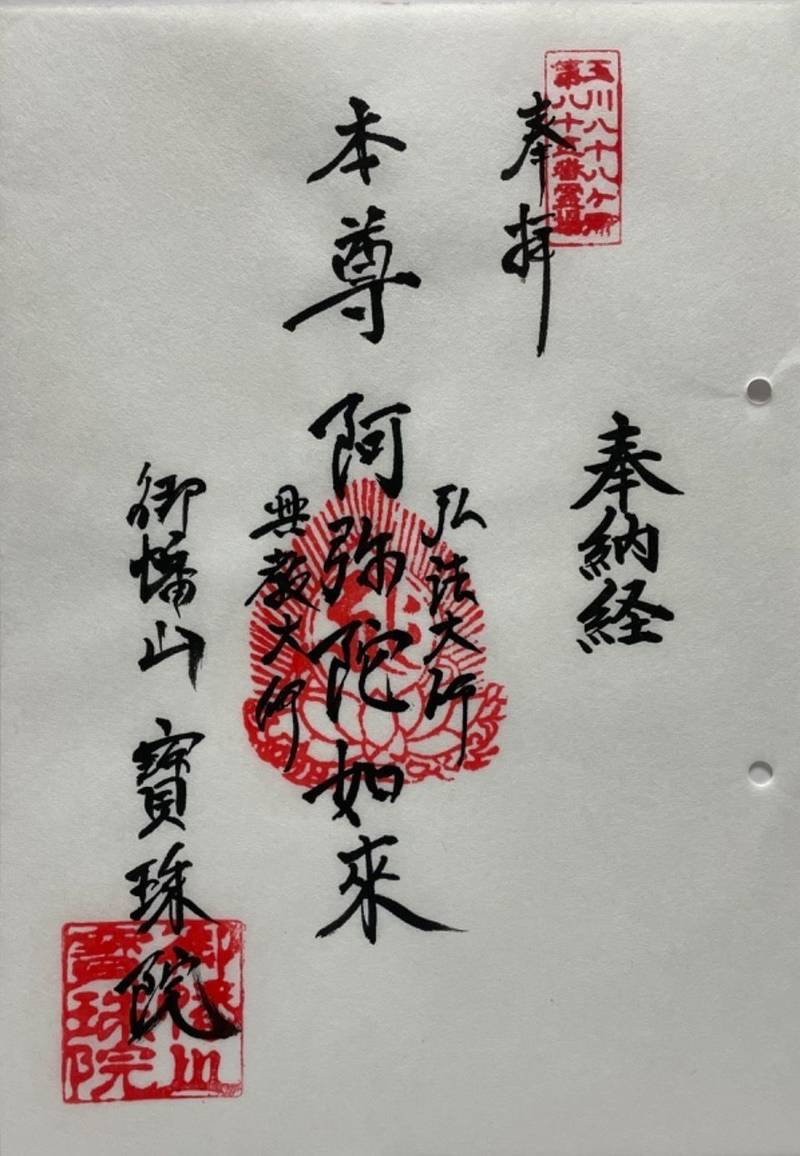 玉川八十八ケ所
第八十五番霊場
奉拝
奉納経
弘法大師
本尊 阿弥陀如來
興教大師
御幡山 寶珠院
御幡山
寶珠院